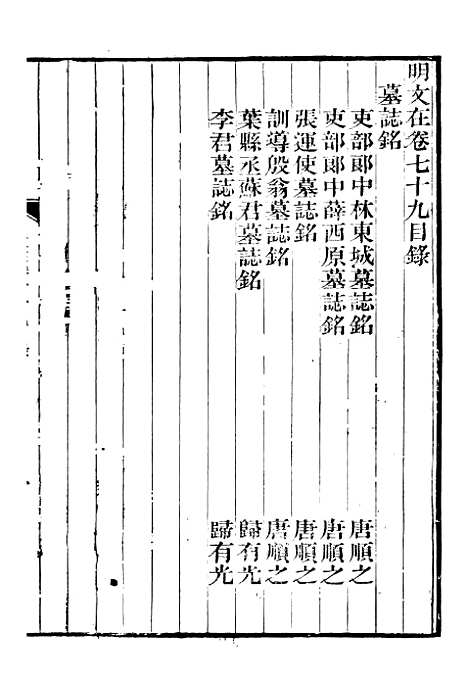 明文在卷七十九目錄
墓誌銘
吏部郎中林東城墓誌銘 唐順之
吏部郎中薛西原墓誌銘 唐順之
張運使墓誌銘 唐順之
訓導殷翁墓誌銘 唐順之
葉縣丞蘇君墓誌銘 歸有光
李君墓誌銘 歸有光